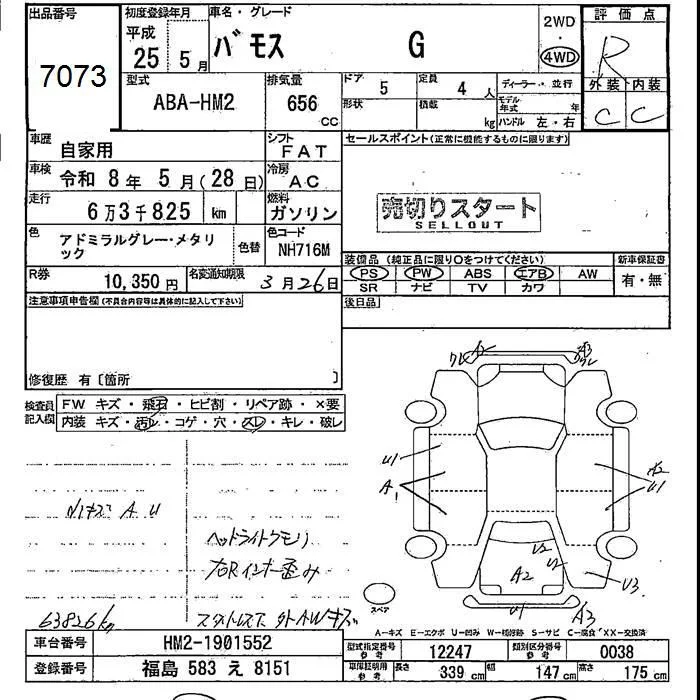 出品番号
7073
初度登録年月
平成
25 5 月
車名・グレード
バモス G
2WD
・
4WD
評価点
R
外装 内装
C C
型式
ABA-HM2
排気量
656
CC
ドア
5
定員
4 人
形状
積載
kg
ディーラー・並行
モデル年式 年
ハンドル 左・右
車歴
自家用
シフト
FAT
車検
令和 8年 5月(28日)
冷房
AC
走行
6万3千825 km
燃料
ガソリン
色
アドミラルグレー・メタリック
色替
色コード
NH716M
R券
10,350 円
名変通知期限
3月26日
セールスポイント(正常に機能するものに限ります)
売切りスタート
SELLOUT
装備品(純正品に限り○をつけてください)
PS PW ABS エアB AW
SR ナビ TV カワ
新車保証書
有・無
後日品
注意事項申告欄(不具合内容等は具体的に記入して下さい)
修復歴 有〔箇所 〕
検査員記入欄
FW キズ・飛石・ヒビ割・リペア跡・×要
内装 キズ・汚れ・コゲ・穴・スレ・キレ・破レ
小キズ A U
ヘッドライトクモリ
右Rインナー歪み
63826km
スタットレス 外AWキズ
U1
A1
U1
U2
U2
A2
U3
U1
A3
スペア
A―キズ E―エクボ U―凹み W―補修跡 S―サビ C―腐食 「XX―交換済
車台番号
HM2-1901552
登録番号
福島 583 え 8151
型式指定番号
参考
12247
類別区分番号
参考
0038
車庫証明用
参考
長さ
339 cm
幅
147 cm
高さ
175 cm